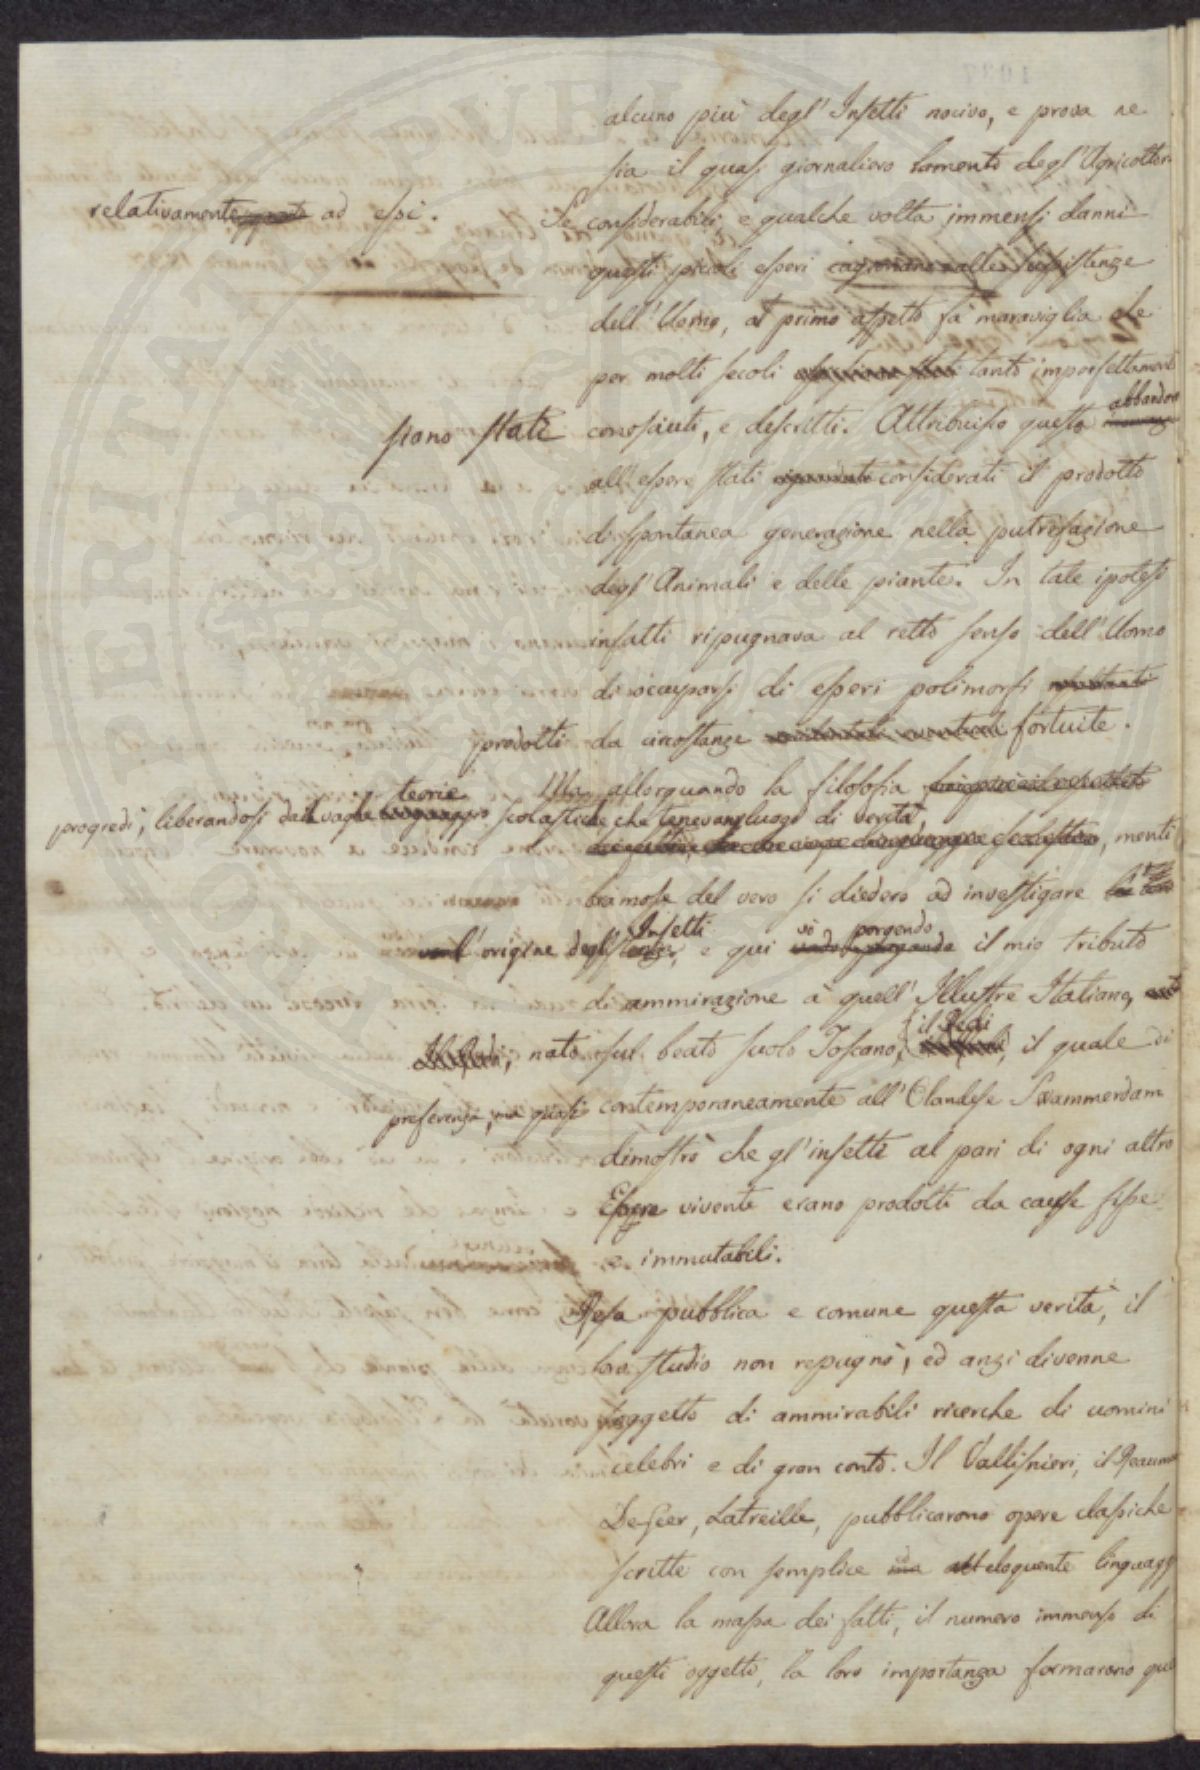 alcuno più degl' Insetti nocivo, e prova ne
sia il quasi giornaliero lamento degl' Agricoltori
relativamente ad essi. Se considerabili, e qualche volta immensi danni
questi piccoli esseri cagionano alle sussistenze
dell' Uomo, al primo aspetto fa maraviglia che
per molti secoli tanto imperfettamente
siano stati conosciuti, e descritti. Attribuisco questo abbandono
all' essere stati considerati il prodotto
di spontanea generazione nella putrefazione
degl' Animali e delle piante. In tale ipotesi
infatti ripugnava al retto senso dell' Uomo
di occuparsi di esseri polimorfi
prodotti da circostanze fortuite.
Ma allorquando la filosofia
progredì, liberandosi dalle vaghe teorie scolastiche che tenevan luogo di verità,
menti
bramose del vero si diedero ad investigare
l'origine degl' Insetti, e qui vò porgendo il mio tributo
di ammirazione a quell' Illustre Italiano,
nato sul beato suolo Toscano, il Redi, il quale di
preferenza, ma quasi contemporaneamente all' Olandese Swammerdam
dimostrò che gl' insetti al pari di ogni altro
Essere vivente erano prodotti da cause fisse
e immutabili.
Resa pubblica e comune questa verità, il
loro studio non repugnò, ed anzi divenne
soggetto di ammirabili ricerche di uomini
celebri e di gran conto. Il Vallisnieri, il Reaumur
De-Geer, Latreille, pubblicarono opere classiche
scritte con semplice ed eloquente linguagg
Allora la massa dei fatti, il numero immenso di
questi oggetti, la loro importanza formarono que